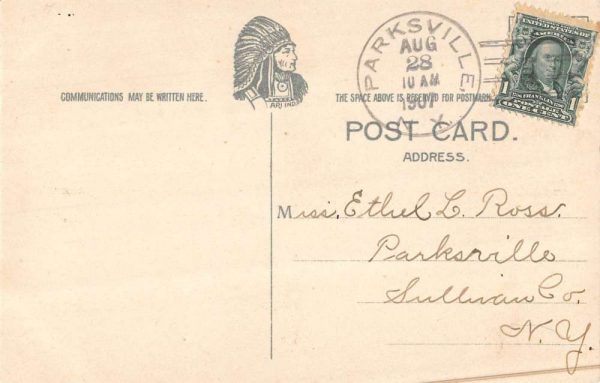 PARKSVILLE
AUG
28
10 AM
1907
N. Y.
UNITED STATES OF AMERICA
1 1
ONE CENT
COMMUNICATIONS MAY BE WRITTEN HERE.
THE SPACE ABOVE IS RESERVED FOR POSTMARK
POST CARD.
ADDRESS.
Miss. Ethel L. Ross.
Parksville
Sullivan Co.
N. Y.